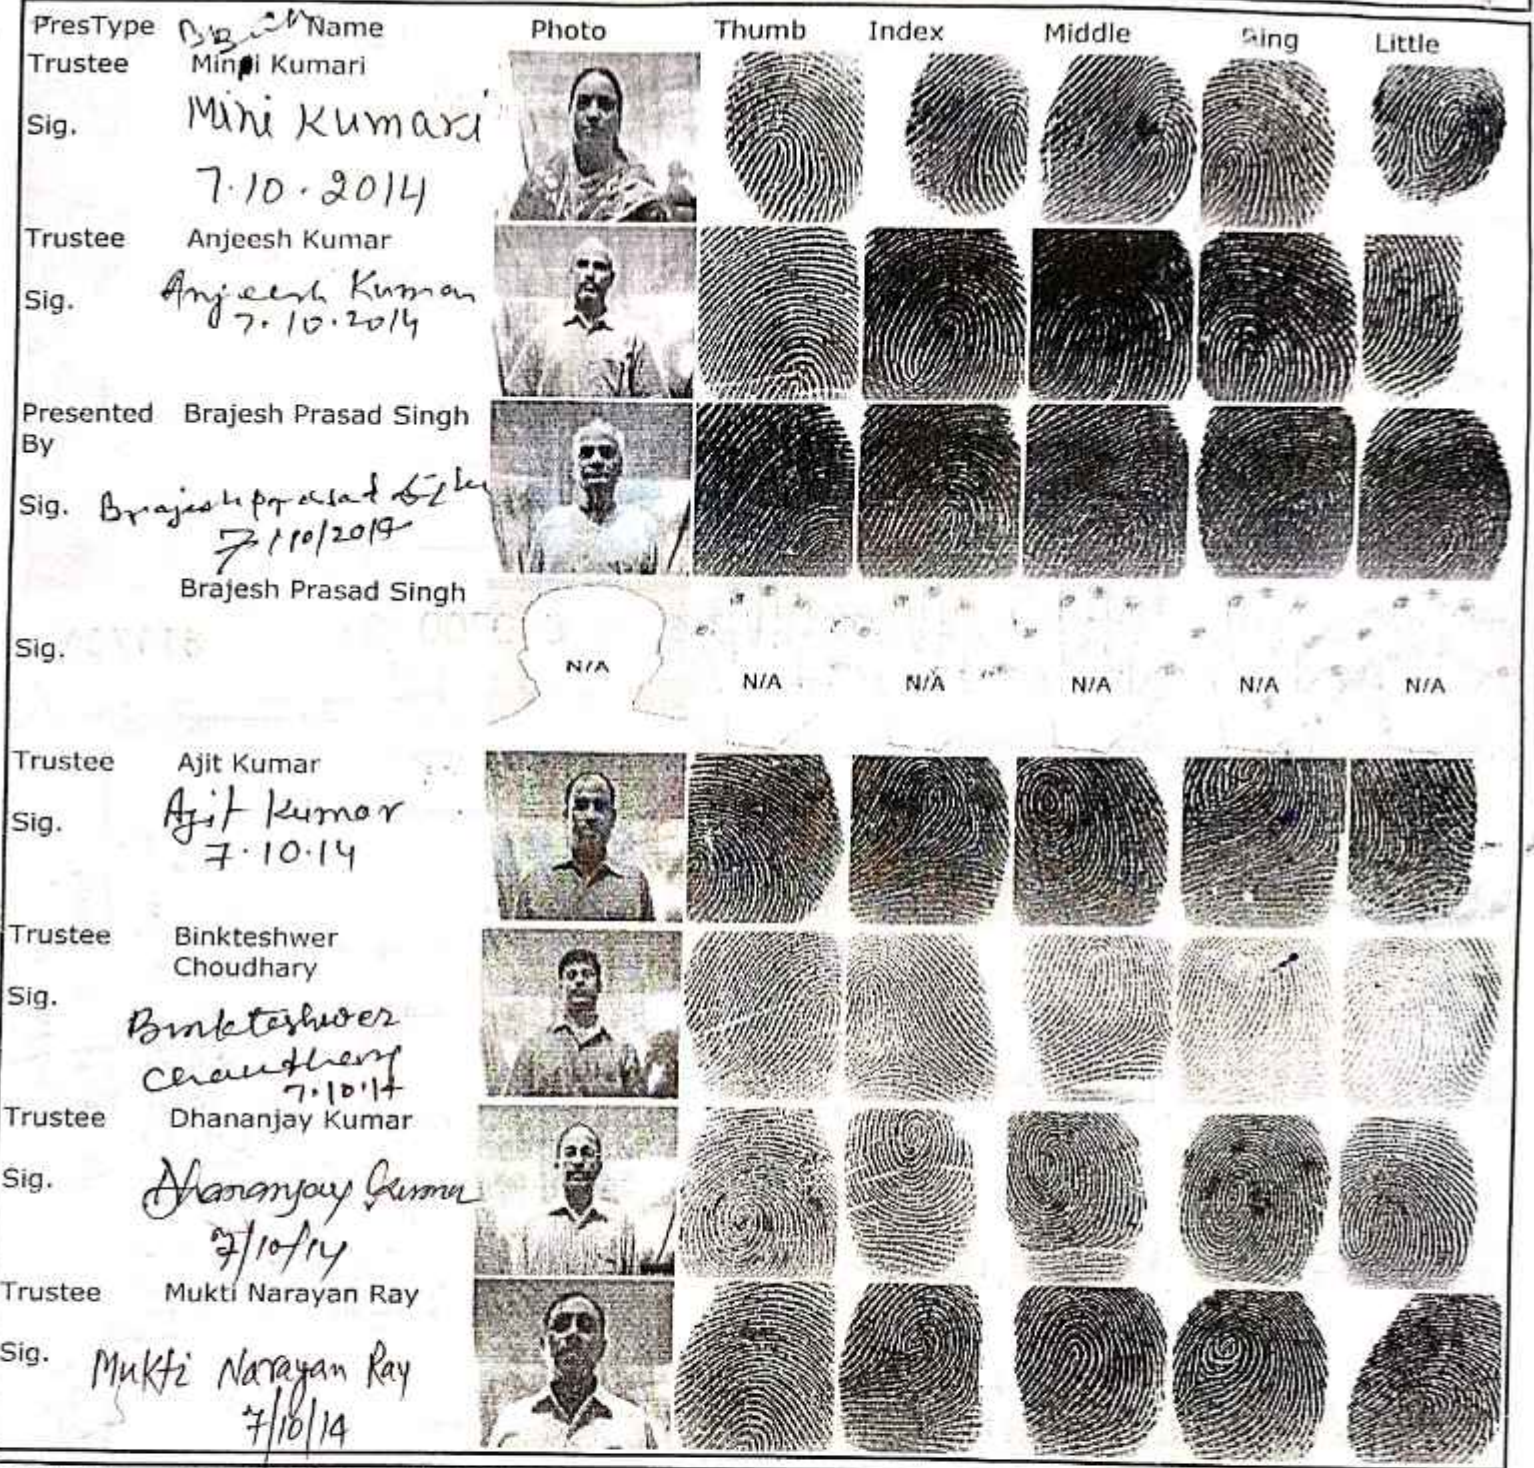 PresType Name Photo Thumb Index Middle Ring Little
Trustee Mini Kumari
Sig. Mini Kumari
7.10.2014
Trustee Anjeesh Kumar
Sig. Anjeesh Kumar
7.10.2014
Presented By Brajesh Prasad Singh
Sig. Brajesh prasad
7/10/2014
Brajesh Prasad Singh
Sig.
N/A N/A N/A N/A N/A N/A
Trustee Ajit Kumar
Sig. Ajit Kumar
7.10.14
Trustee Binkteshwer
Choudhary
Sig. Binkteshwer
Choudhary
7.10.14
Trustee Dhananjay Kumar
Sig. Dhananjay Kumar
7/10/14
Trustee Mukti Narayan Ray
Sig. Mukti Narayan Ray
7/10/14